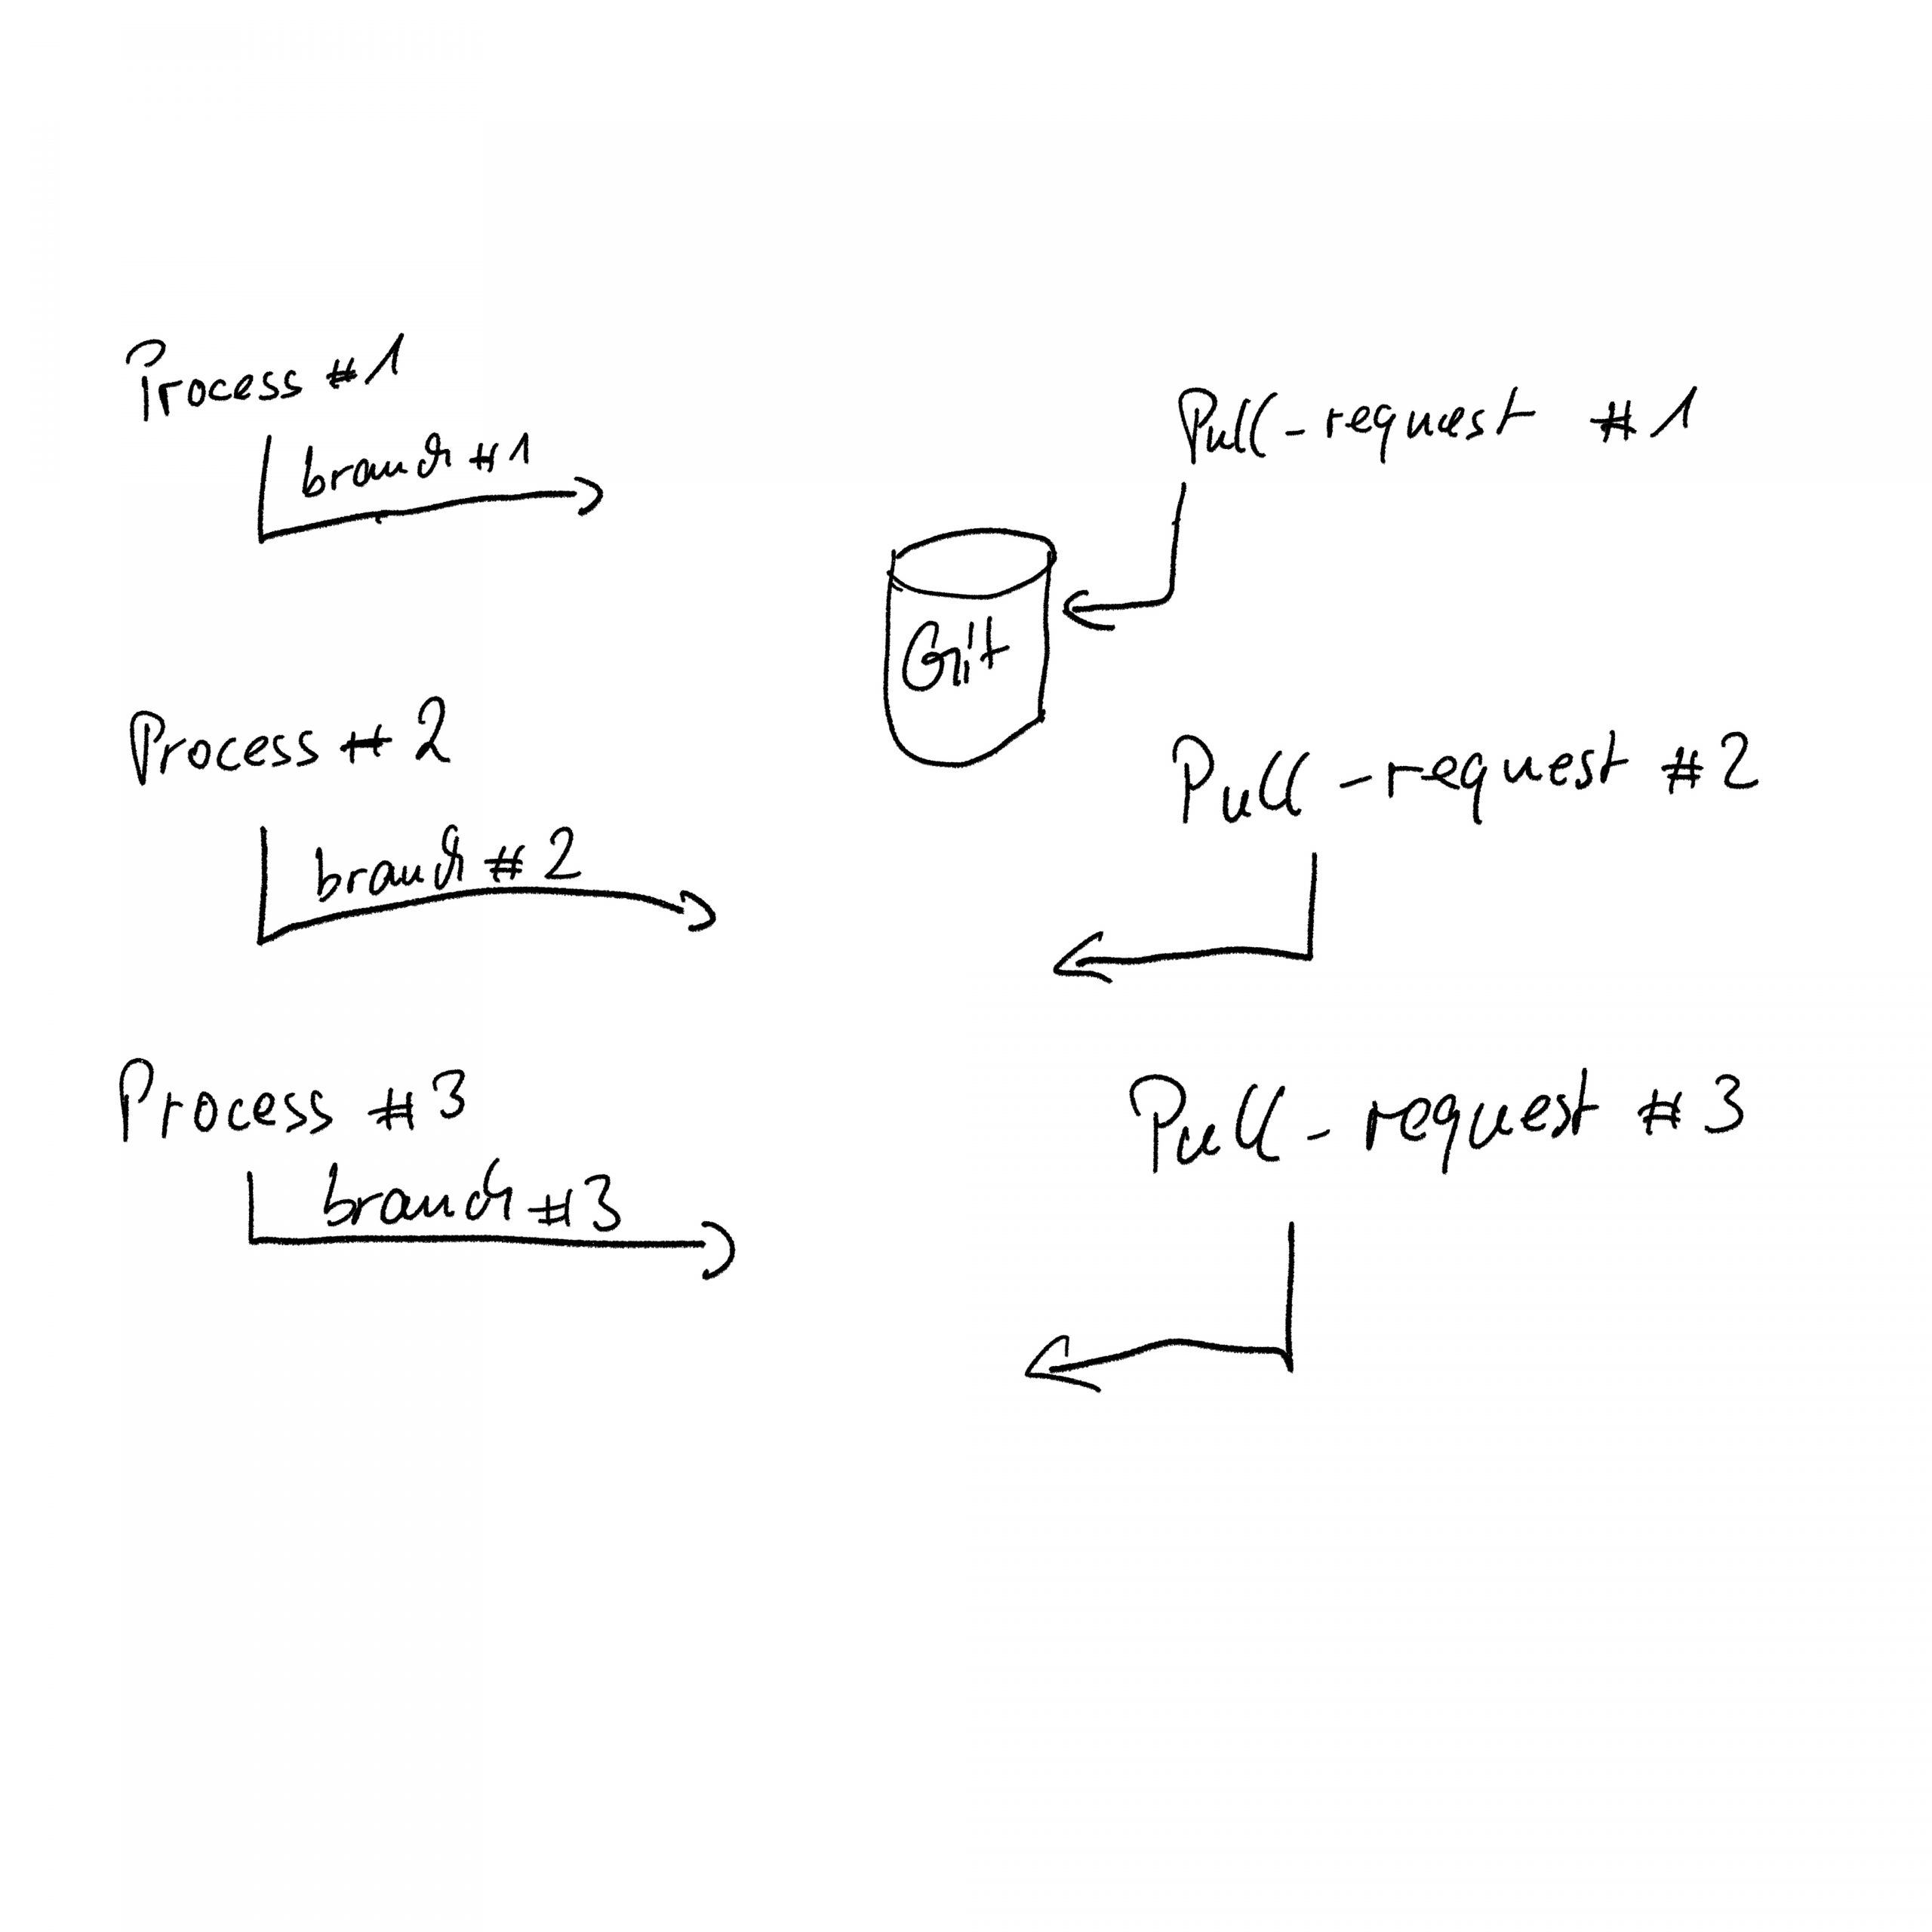 Process #1
branch #1
Pull-request #1
Git
Process #2
branch #2
Pull-request #2
Process #3
branch #3
Pull-request #3